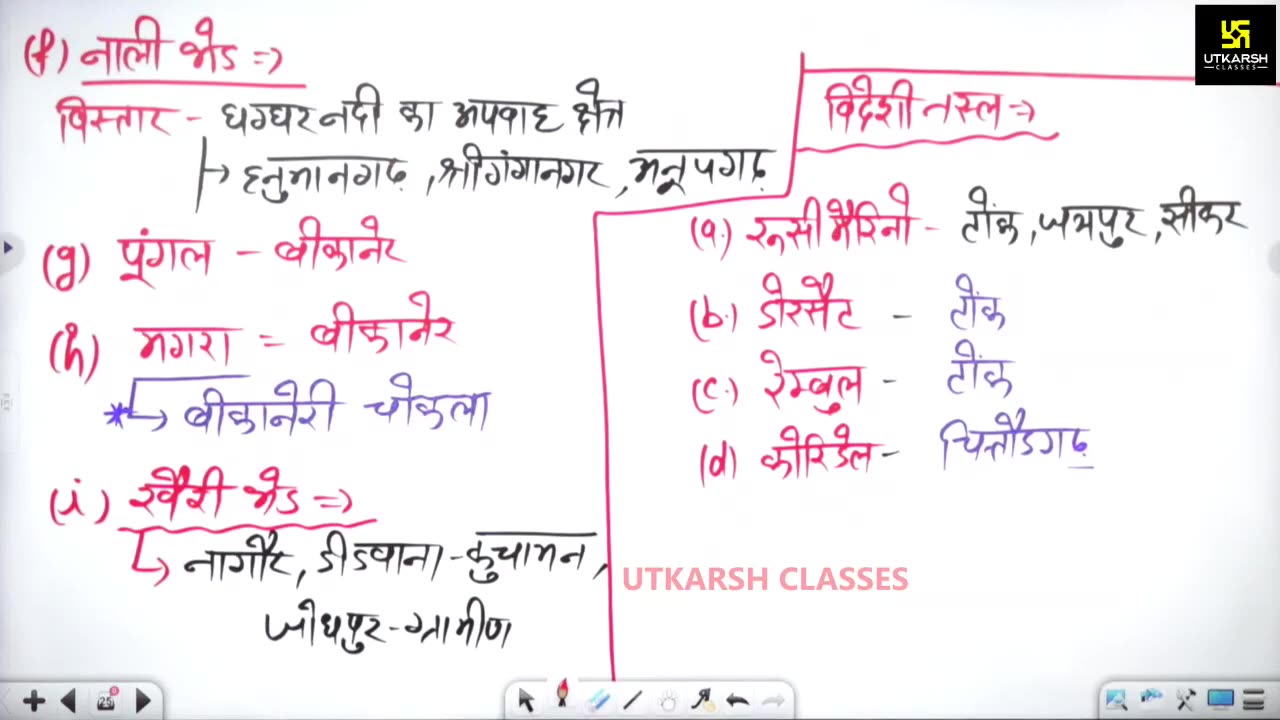 (f) नाली भेड =>
विस्तार - घग्घर नदी का अपवाह क्षेत्र
→ हनुमानगढ़, श्रीगंगानगर, अनूपगढ़
(g) पूंगल - बीकानेर
(h) मगरा = बीकानेर
*→ बीकानेरी चोकला
(i) खैरी भेड =>
→ नागौर, डीडवाना-कुचामन,
जोधपुर-ग्रामीण
विदेशी नस्ल =>
(a.) रूसी मैरिनो - टोंक, जयपुर, सीकर
(b.) डोरसैट - टोंक
(c.) रेम्बुल - टोंक
(d) कोरिडेल - चित्तौडगढ
UTKARSH CLASSES
UTKARSH
CLASSES
25